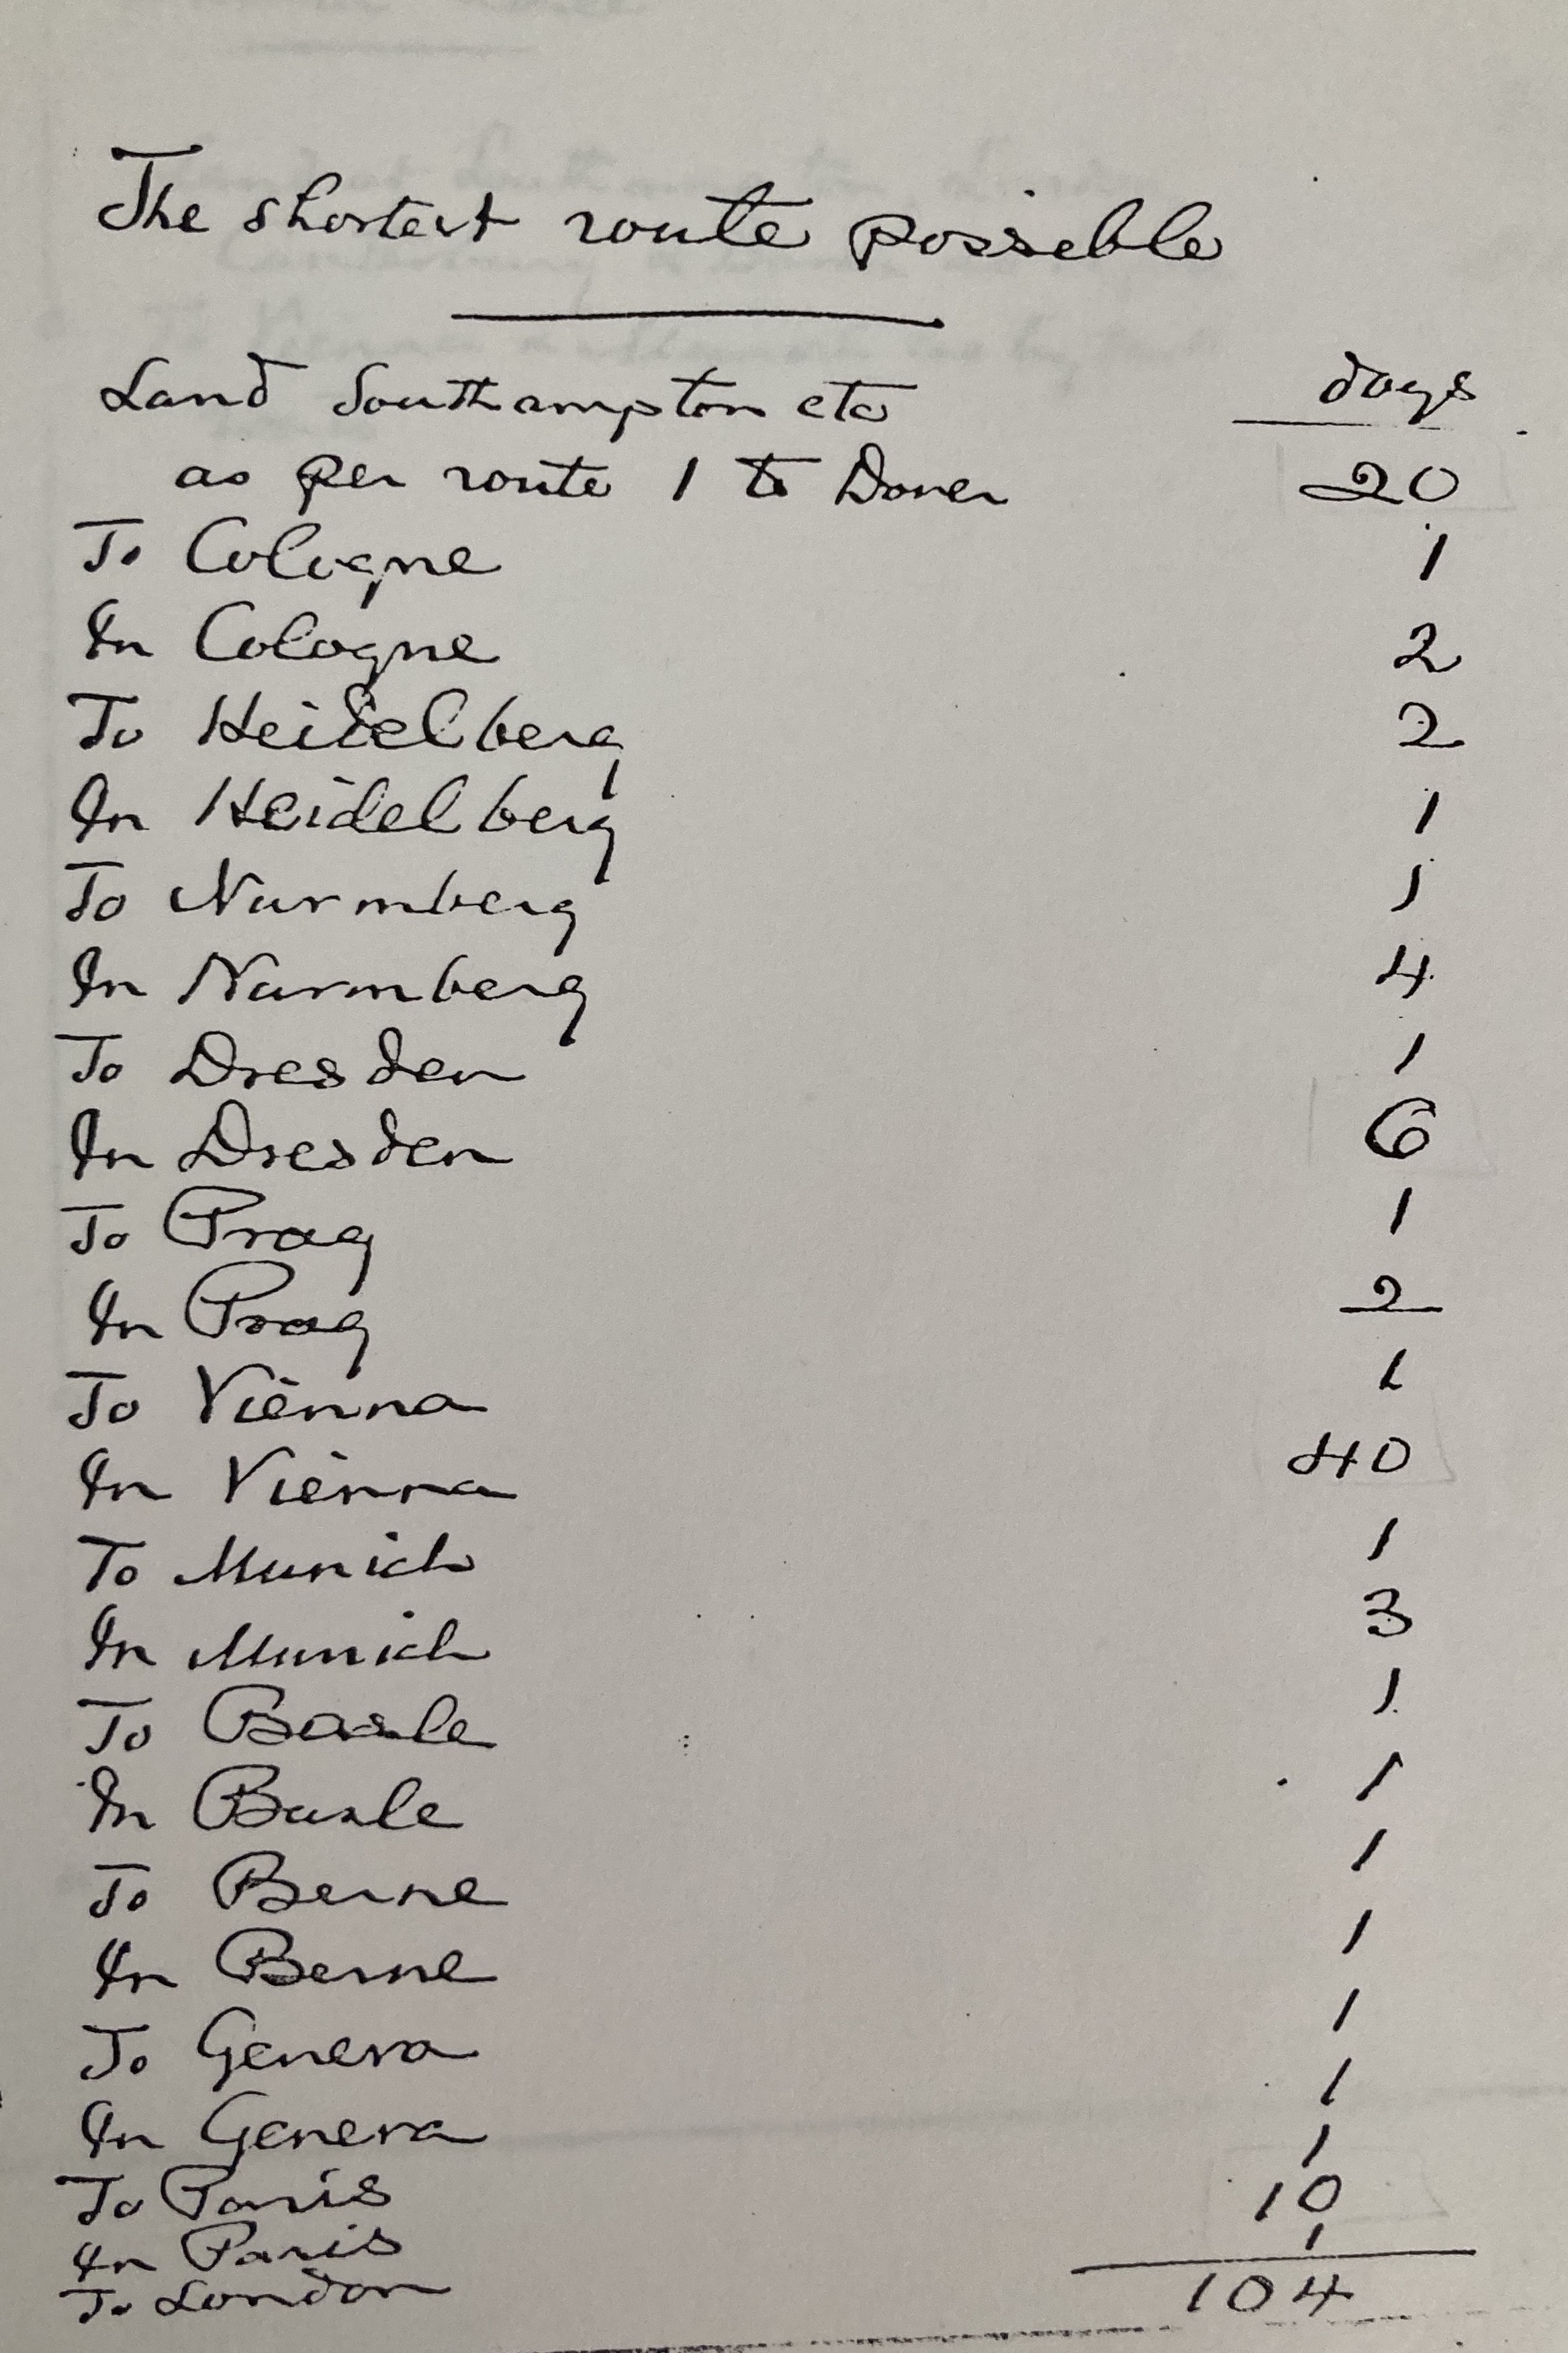 The shortest route possible
Land Southampton etc days
as per route 1 to Dover 20
To Cologne 1
In Cologne 2
To Heidelberg 2
In Heidelberg 1
To Nurmberg 1
In Nurmberg 4
To Dresden 1
In Dresden 6
To Prag 1
In Prag 2
To Vienna 1
In Vienna 40
To Munich 1
In Munich 3
To Basle 1
In Basle 1
To Berne 1
In Berne 1
To Geneva 1
In Geneva 1
To Paris 1
In Paris 10
To London 1
104